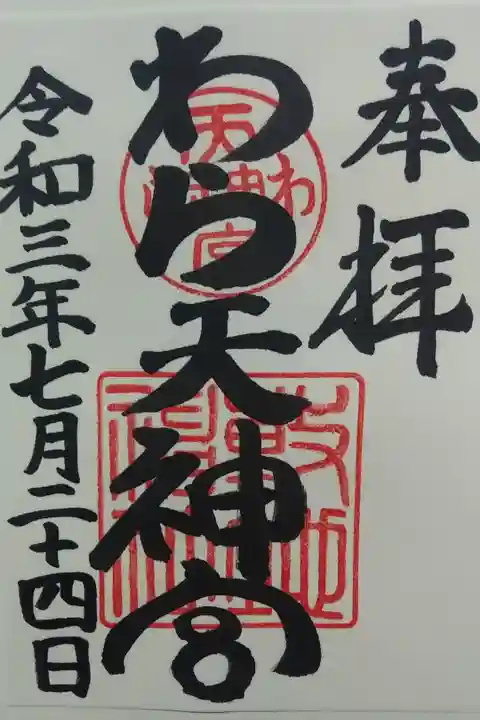 奉拝
わら天神宮
令和三年七月二十四日